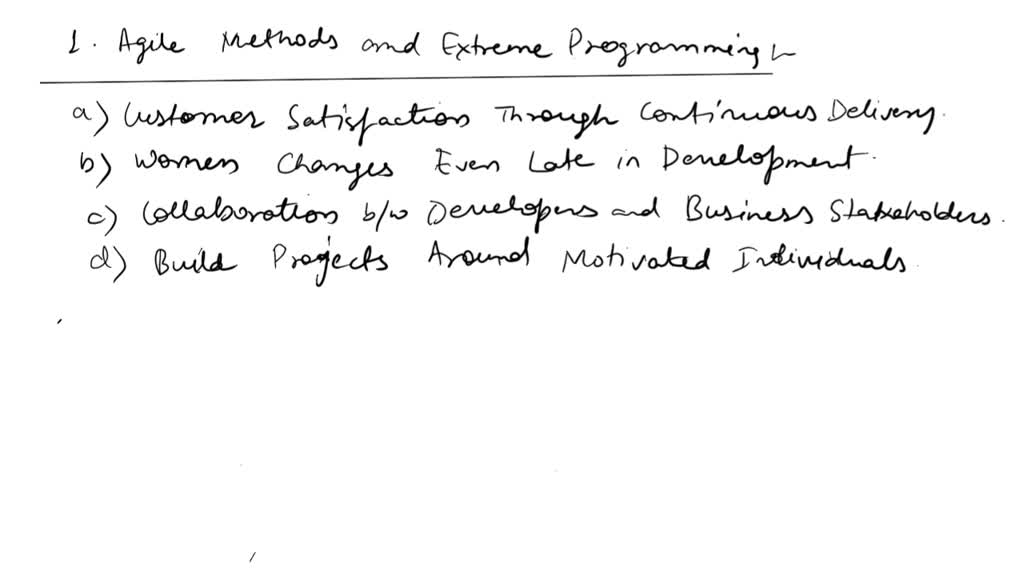 1. Agile Methods and Extreme Programming
a) Customer Satisfaction Through Continuous Delivery.
b) Women Changes Even Late in Development.
c) Collaboration b/w Developers and Business Stakeholders.
d) Build Projects Around Motivated Individuals.